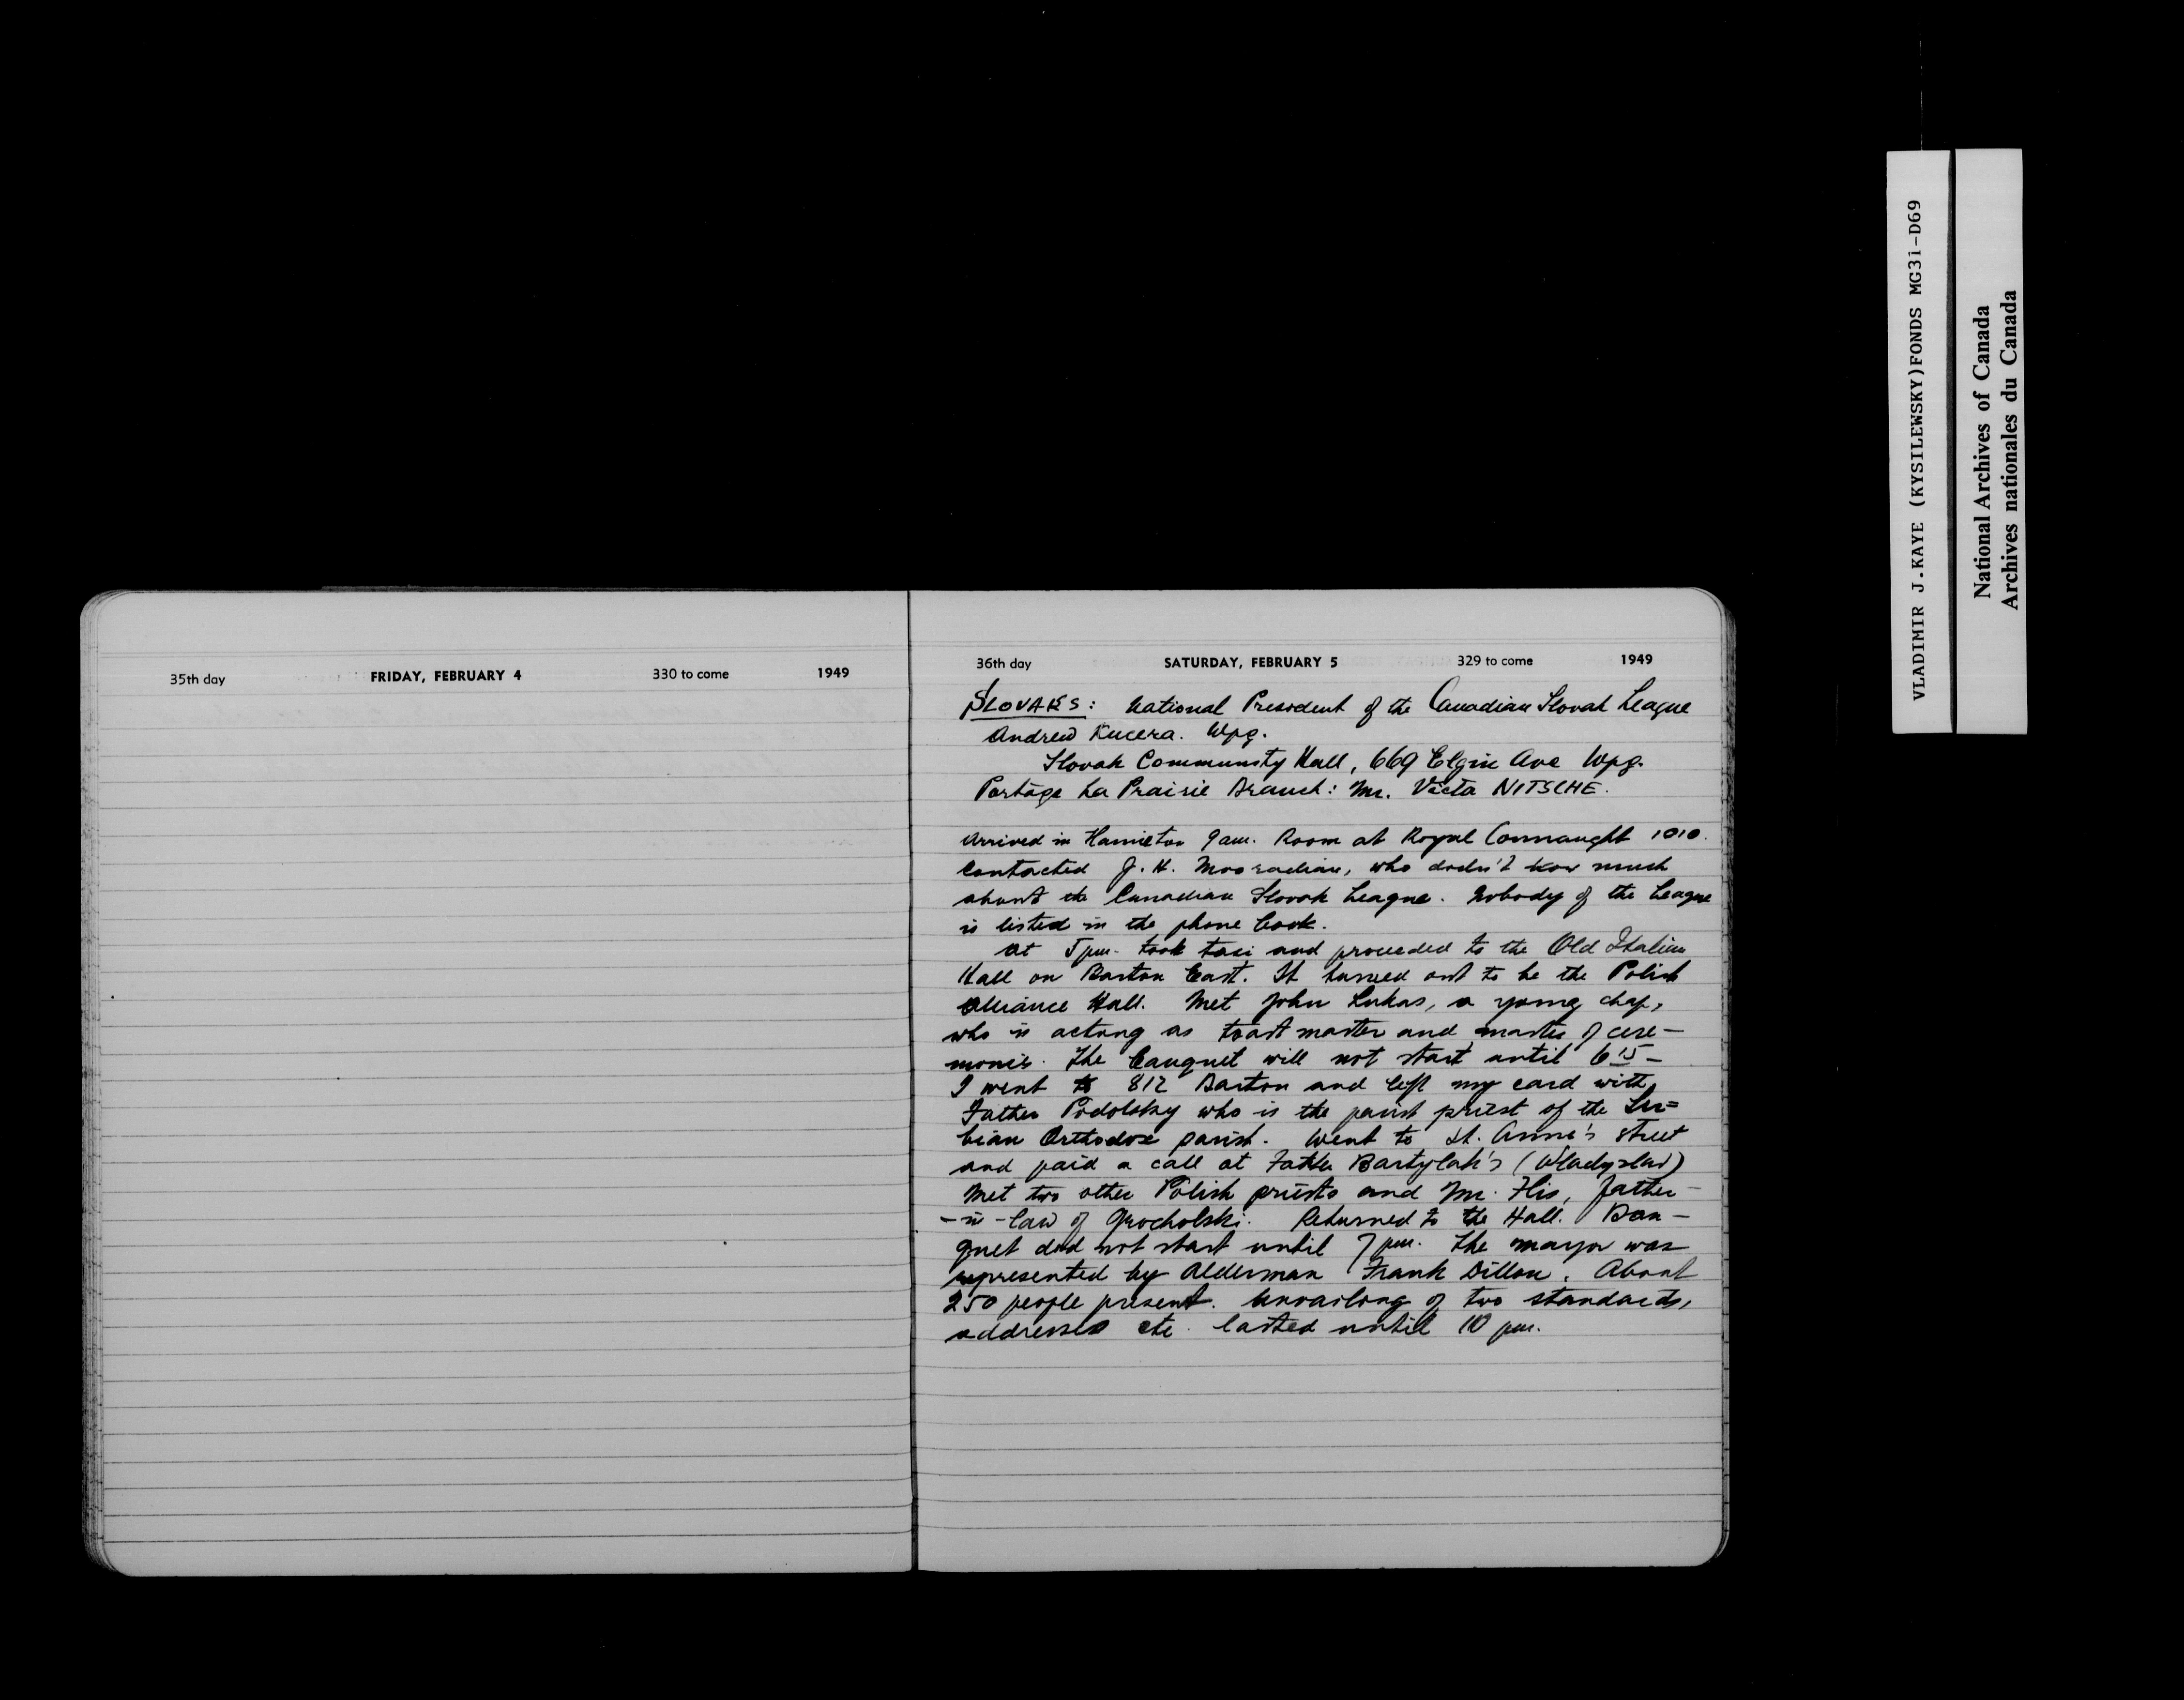 35th day FRIDAY, FEBRUARY 4 330 to come 1949
36th day SATURDAY, FEBRUARY 5 329 to come 1949
SLOVAKS: National President of the Canadian Slovak League
Andrew Kucera. Wpg.
Slovak Community Hall, 669 Elgin Ave Wpg.
Portage La Prairie Branch: Mr. Victa NITSCHE.
Arrived in Hamilton 9 am. Room at Royal Connaught 1010.
Contacted J. H. Mooradian, who dodn't know much
about the Canadian Slovak League. Nobody of the League
is listed in the phone book.
At 5 pm. took taxi and proceeded to the Old Italian
Hall on Barton East. It turned out to be the Polish
Alliance Hall. Met John Lukas, a young chap,
who is acting as toast master and master of cere-
monies. The banquet will not start until 6 15 -
I went to 812 Barton and left my card with
Father Podolsky who is the parish priest of the Ser=
bian Orthodox parish. Went to St. Anne's street
and paid a call at Father Bartylak's (Wladyslav)
Met two other Polish priests and Mr. His, father-
-in-law of Grocholski. Returned to the Hall. Ban-
quet did not start until 7 pm. The mayor was
represented by Alderman Frank Dillon. About
250 people present. Unvailing of two standards,
addresses etc. lasted until 10 pm.
VLADIMIR J.KAYE (KYSILEWSKY)FONDS MG31-D69
National Archives of Canada
Archives nationales du Canada